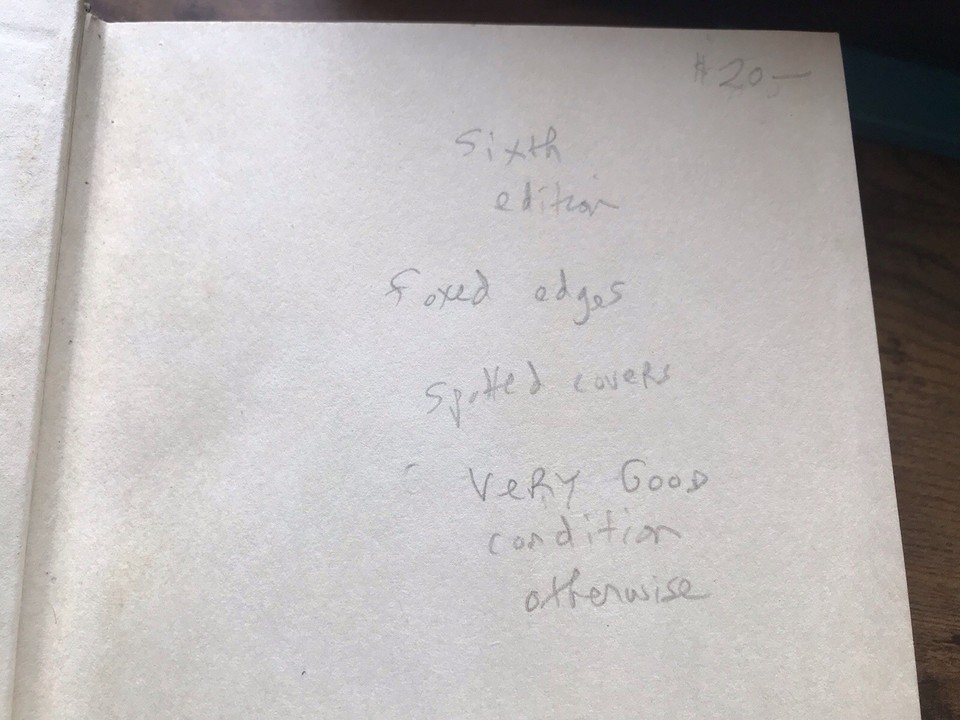 $20—
Sixth
edition
Foxed edges
Spotted covers
VeRY GOOD
condition
otherwise